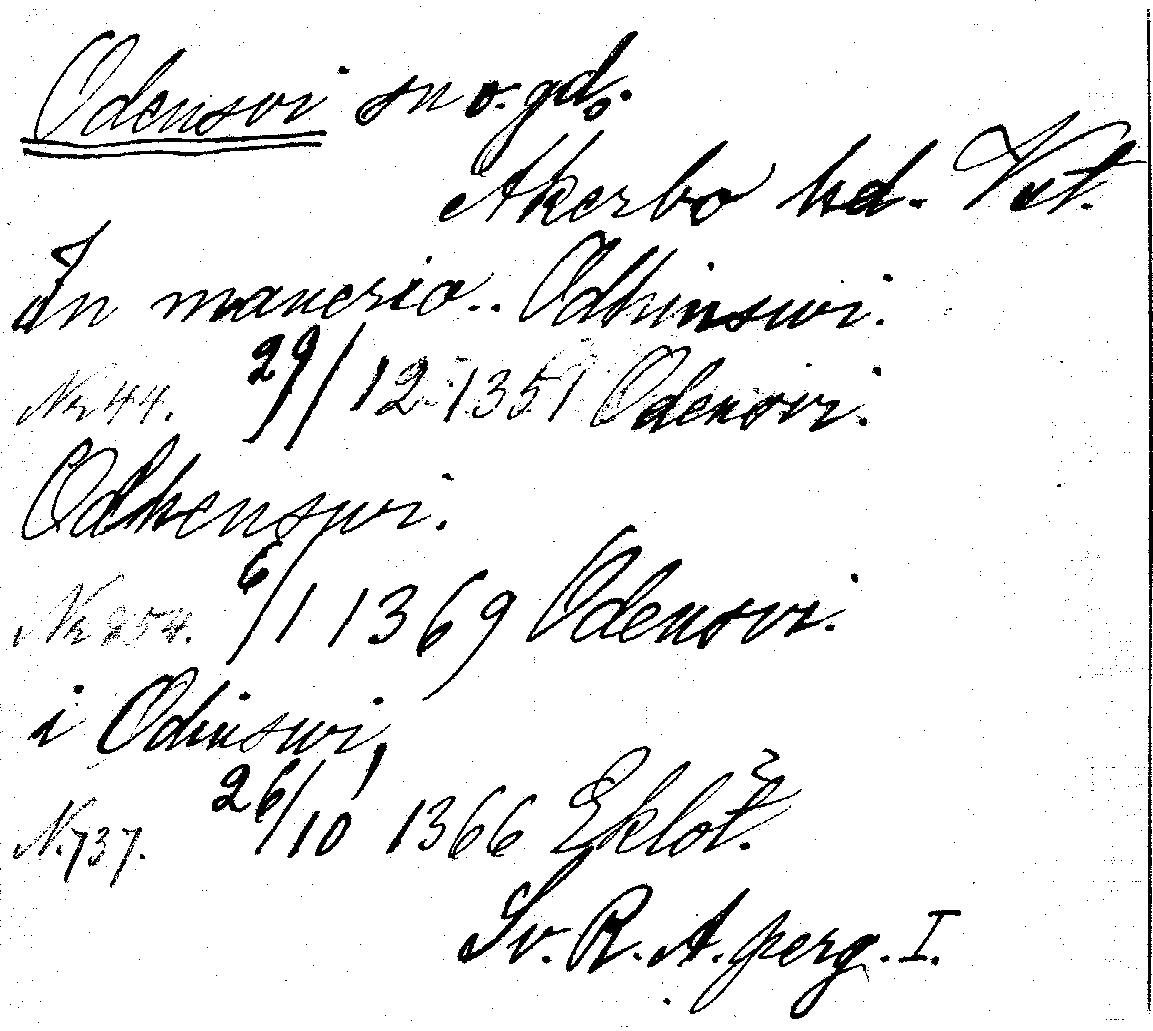 Odensvi sn o. gd.
Åkerbo hd. Vstl.
In manerio.. Odhinswi.
Nr 44. 29/12 1351 Odensvi.
Odhenswi.
Nr 254. 6/1 1369 Odensvi.
i Odinswi,
N. 737. 26/10 1366 Eklöt.
Sv. R. A. perg. I.